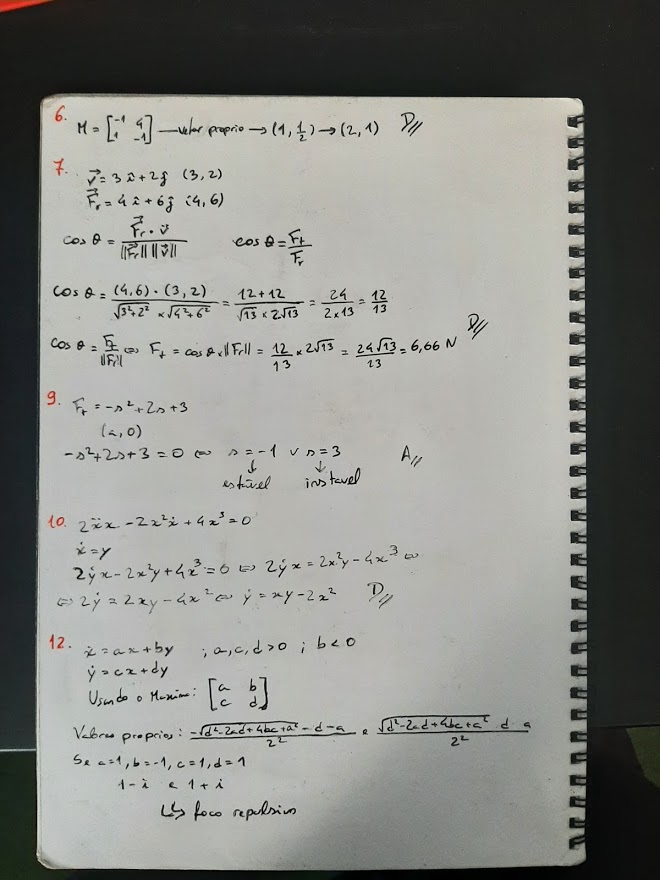 6. M = [-1 4; 1 -1] — valor proprio → (1, 1/2) → (2, 1) D//
7. v⃗ = 3 î + 2 ĵ (3, 2)
F⃗r = 4 î + 6 ĵ (4, 6)
cos θ = F⃗r · v⃗ / ||F⃗r|| ||v⃗|| cos θ = Ft / Fr
cos θ = (4,6) · (3,2) / √3²+2² × √4²+6² = 12 + 12 / √13 × 2√13 = 24 / 2×13 = 12/13
D//
cos θ = Ft / ||Fr|| ⇔ Ft = cos θ × ||Fr|| = 12/13 × 2√13 = 24√13 / 13 = 6,66 N
9. Fr = -s² + 2s + 3
(s, 0)
-s² + 2s + 3 = 0 ⇔ s = -1 ∨ s = 3 A//
↓ ↓
estável instavel
10. 2ẍx - 2x²ẋ + 4x³ = 0
ẋ = y
2ẏx - 2x²y + 4x³ = 0 ⇔ 2ẏx = 2x²y - 4x³ ⇔
⇔ 2ẏ = 2xy - 4x² ⇔ ẏ = xy - 2x² D//
12. ẋ = ax + by ; a, c, d > 0 ; b < 0
ẏ = cx + dy
Usando o Maxima: [a b; c d]
Valores proprios: -√d²-2ad+4bc+a² - d - a / 2² e √d²-2ad+4bc+a² d a / 2²
Se a=1, b=-1, c=1, d=1
1 - i e 1 + i
↳ foco repulsivo